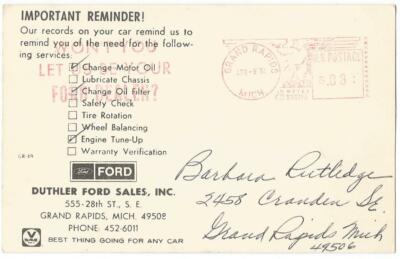 IMPORTANT REMINDER!
Our records on your car remind us to
remind you of the need for the follow-
ing services.
WON'T YOU
LET US BE YOUR
FORD DEALER?
Change Motor Oil
Lubricate Chassis
Change Oil Filter
Safety Check
Tire Rotation
Wheel Balancing
Engine Tune-Up
Warranty Verification
FORD
DUTHLER FORD SALES, INC.
555-28th ST., S. E.
GRAND RAPIDS, MICH. 49508
PHONE: 452-6011
BEST THING GOING FOR ANY CAR
GRAND RAPIDS
MICH
U.S. POSTAGE
Barbara Rutledge
2458 Cranden Se.
Grand Rapids Mich
49506